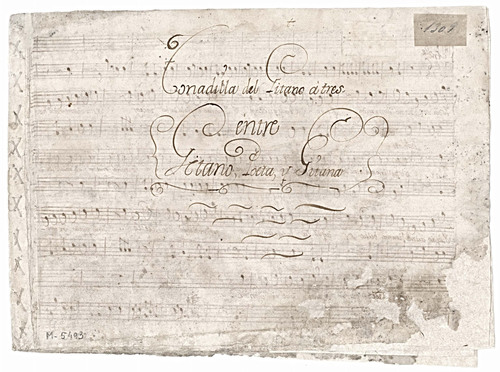 1301
Tonadilla del Gitano a tres
entre
Gitano, Poeta, y Gitana
M-5493